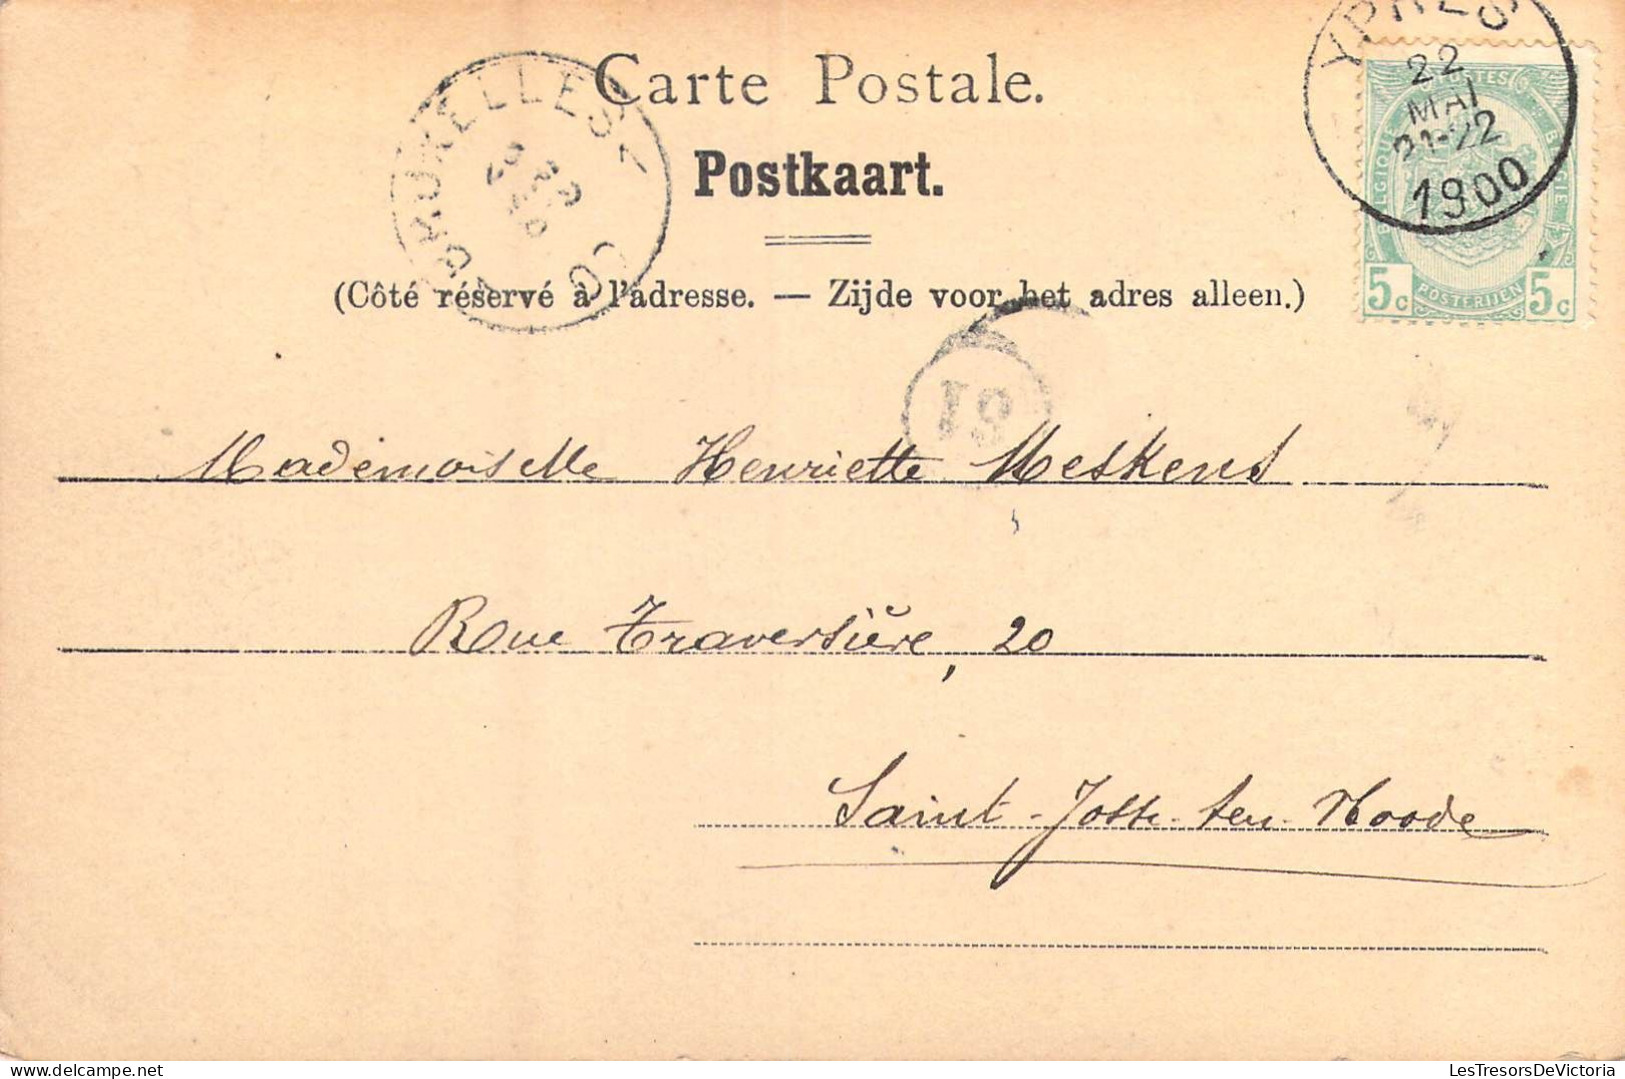 YPRES
22
MAI
21-22
1900
POSTES
BELGIQUE
BELGIE
5c POSTERIJEN 5c
BRUXELLES 1
Carte Postale.
Postkaart.
(Côté réservé à l'adresse. — Zijde voor het adres alleen.)
19
Mademoiselle Henriette Meskens
Rue Traversière, 20
Saint-Josse-ten-Noode
LesTresorsDeVictoria